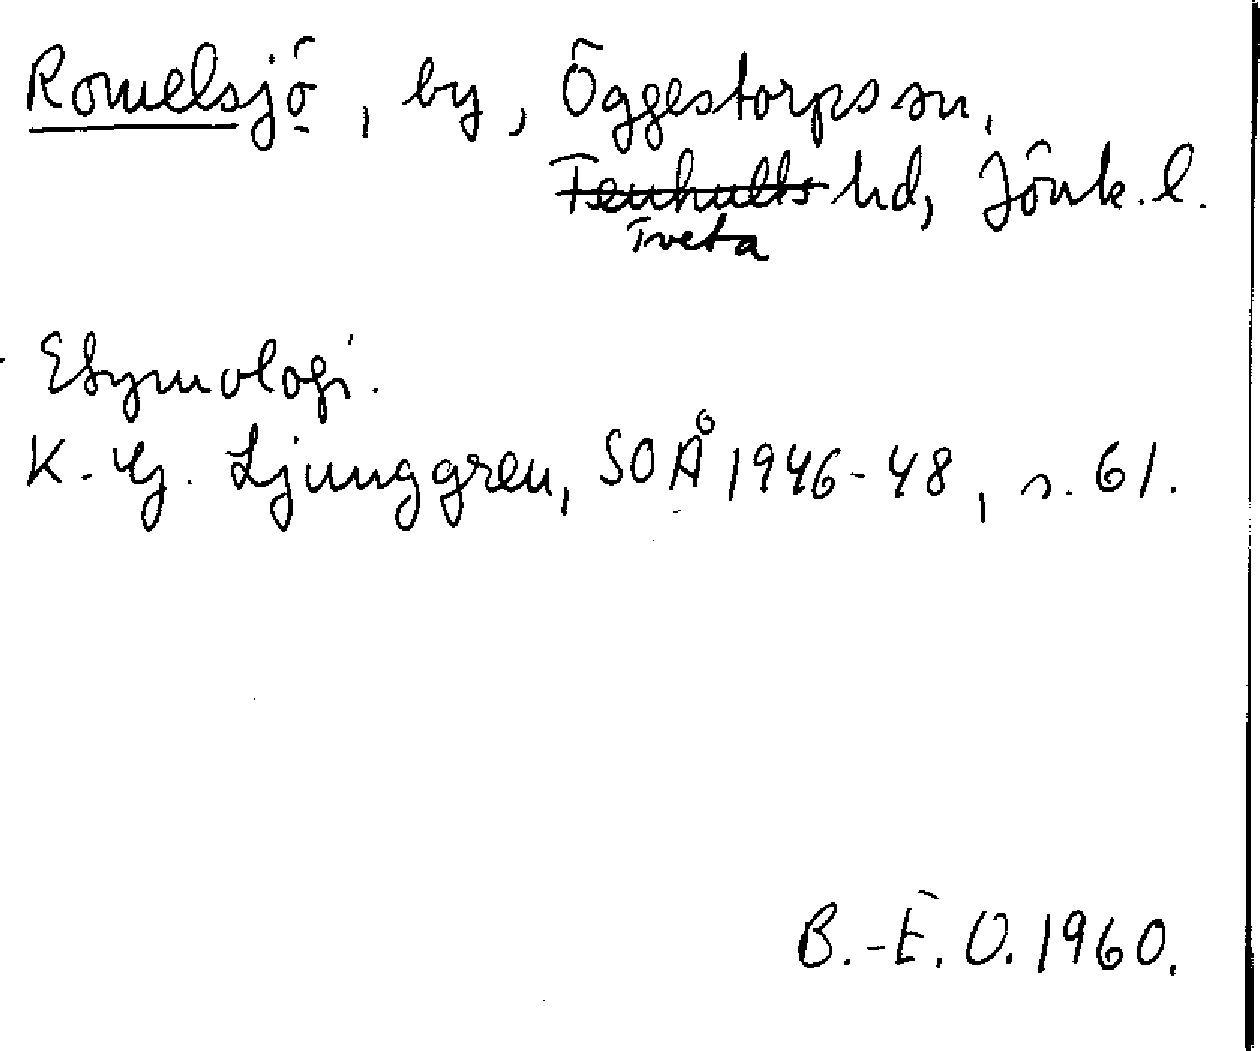 Romelsjö, by, Öggestorps sn,
Tenhults hd, Jönk. l.
Tveta
Etymologi.
K.-G. Ljunggren, SOÅ 1946-48, s. 61.
B.-E. O. 1960.